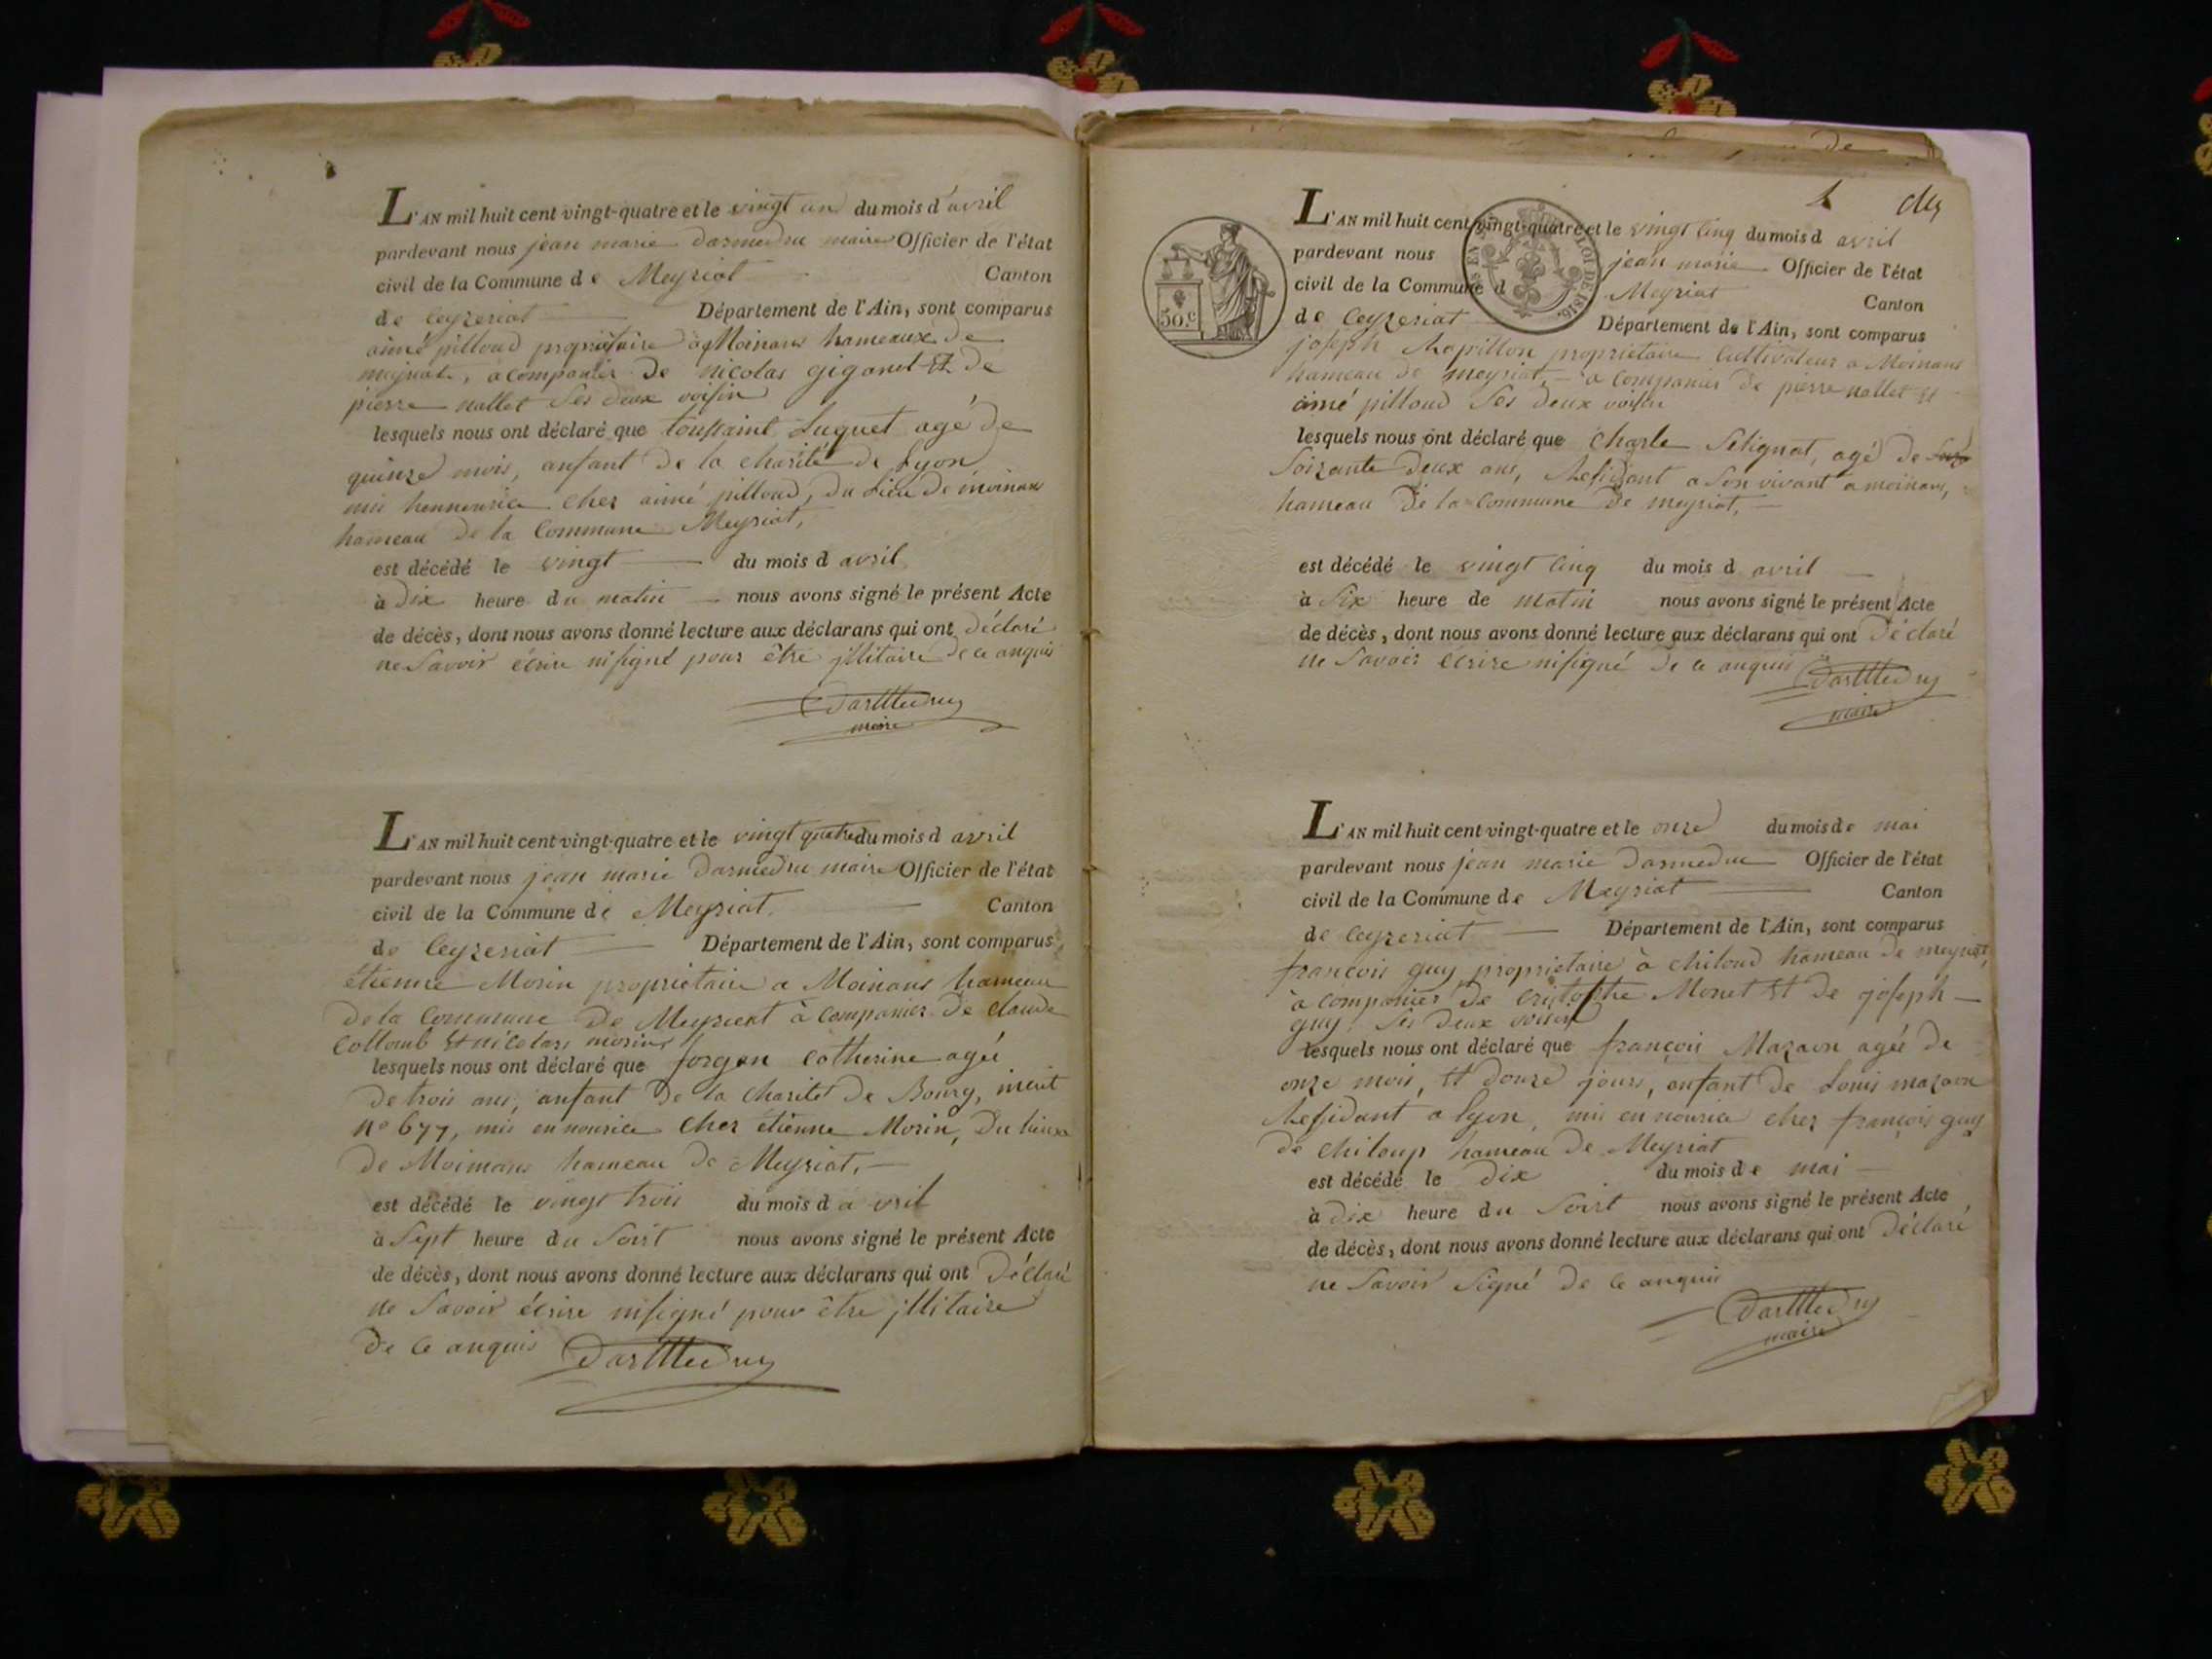 L'AN mil huit cent vingt-quatre et le vingt un du mois d'avril
pardevant nous jean marie darmedru maire Officier de l'état
civil de la Commune de Meyriat Canton
de Ceyzeriat Département de l'Ain, sont comparus
aimé pilloud propriétaire à Moinans hameaux de
meyriat, acompanier de nicolas gigonet et de
pierre nallet Ses deux voisin
lesquels nous ont déclaré que toussaint Luquet agé de
quinze mois, anfant de la charité de Lyon
mis cher aimé pilloud, du Lieu de moinans
hameau de la Commune Meyriat,
est décédé le vingt du mois d avril
à Dix heure du matin nous avons signé le présent Acte
de décès, dont nous avons donné lecture aux déclarans qui ont déclaré
ne Savoir écrire nisigné pour être jllitaire de ce anquis
Darmedru
maire
L'AN mil huit cent vingt-quatre et le vingt quatre du mois d avril
pardevant nous jean marie Darmedru maire Officier de l'état
civil de la Commune de Meyriat. Canton
de Ceyzeriat Département de l'Ain, sont comparus
étienne Morin propriétaire a Moinans hameau
de la Commune De Meyrieat à companier De claude
Collomb et nicolas morin
lesquels nous ont déclaré que forgon catherine agée
De trois ans, anfant De la Charité De Bourg, inscrit
N° 677, mis en nourice Cher étienne Morin, Du lieux
de Moimans hameau de Meyriat,
est décédé le vingt trois du mois d avril
à Sept heure du Soirt nous avons signé le présent Acte
de décès, dont nous avons donné lecture aux déclarans qui ont Déclaré
ne Savoir écrire nisigné pour être jllitaire
De ce anquis Darmedru
1 de
L'AN mil huit cent vingt-quatre et le vingt cinq du mois d avril
pardevant nous jean marie Officier de l'état
civil de la Commune d Meyriat Canton
LOI DE 1816.
50.c
de Ceyzeriat Département de l'Ain, sont comparus
joseph Chapillon propriétaire Cultivateur a Moinans
hameau de meyriat, a companier de pierre nallet et
aimé pilloud Ses deux voisin
lesquels nous ont déclaré que Charle Sélignat, agé De
Soizante Deux ans, Résidant a Son vivant a moinans,
hameau De la Commune De meyriat,
est décédé le vingt cinq du mois d avril
à Six heure de matin nous avons signé le présent Acte
de décès, dont nous avons donné lecture aux déclarans qui ont Déclaré
ne Savoir écrire nisigné De ce anquis Darmedru
maire
L'AN mil huit cent vingt-quatre et le onze du mois de mai
pardevant nous jean marie Darmedru Officier de l'état
civil de la Commune de Meyriat Canton
de Ceyzeriat Département de l'Ain, sont comparus
françois guy propriétaire à chiloud hameau de meyriat,
à companier De cristophe Monet et de joseph
guy Ses deux voisin
lesquels nous ont déclaré que françois Mazaon agée de
onze mois, et douze jours, anfant De Louis mazaon
Résidant a lyon, mis en nourice cher françois guy
de chiloup hameau De Meyriat
est décédé le Dix du mois de mai
à Dix heure du Soirt nous avons signé le présent Acte
de décès, dont nous avons donné lecture aux déclarans qui ont Déclaré
ne Savoir Signé De Ce anquis
Darmedru
maire